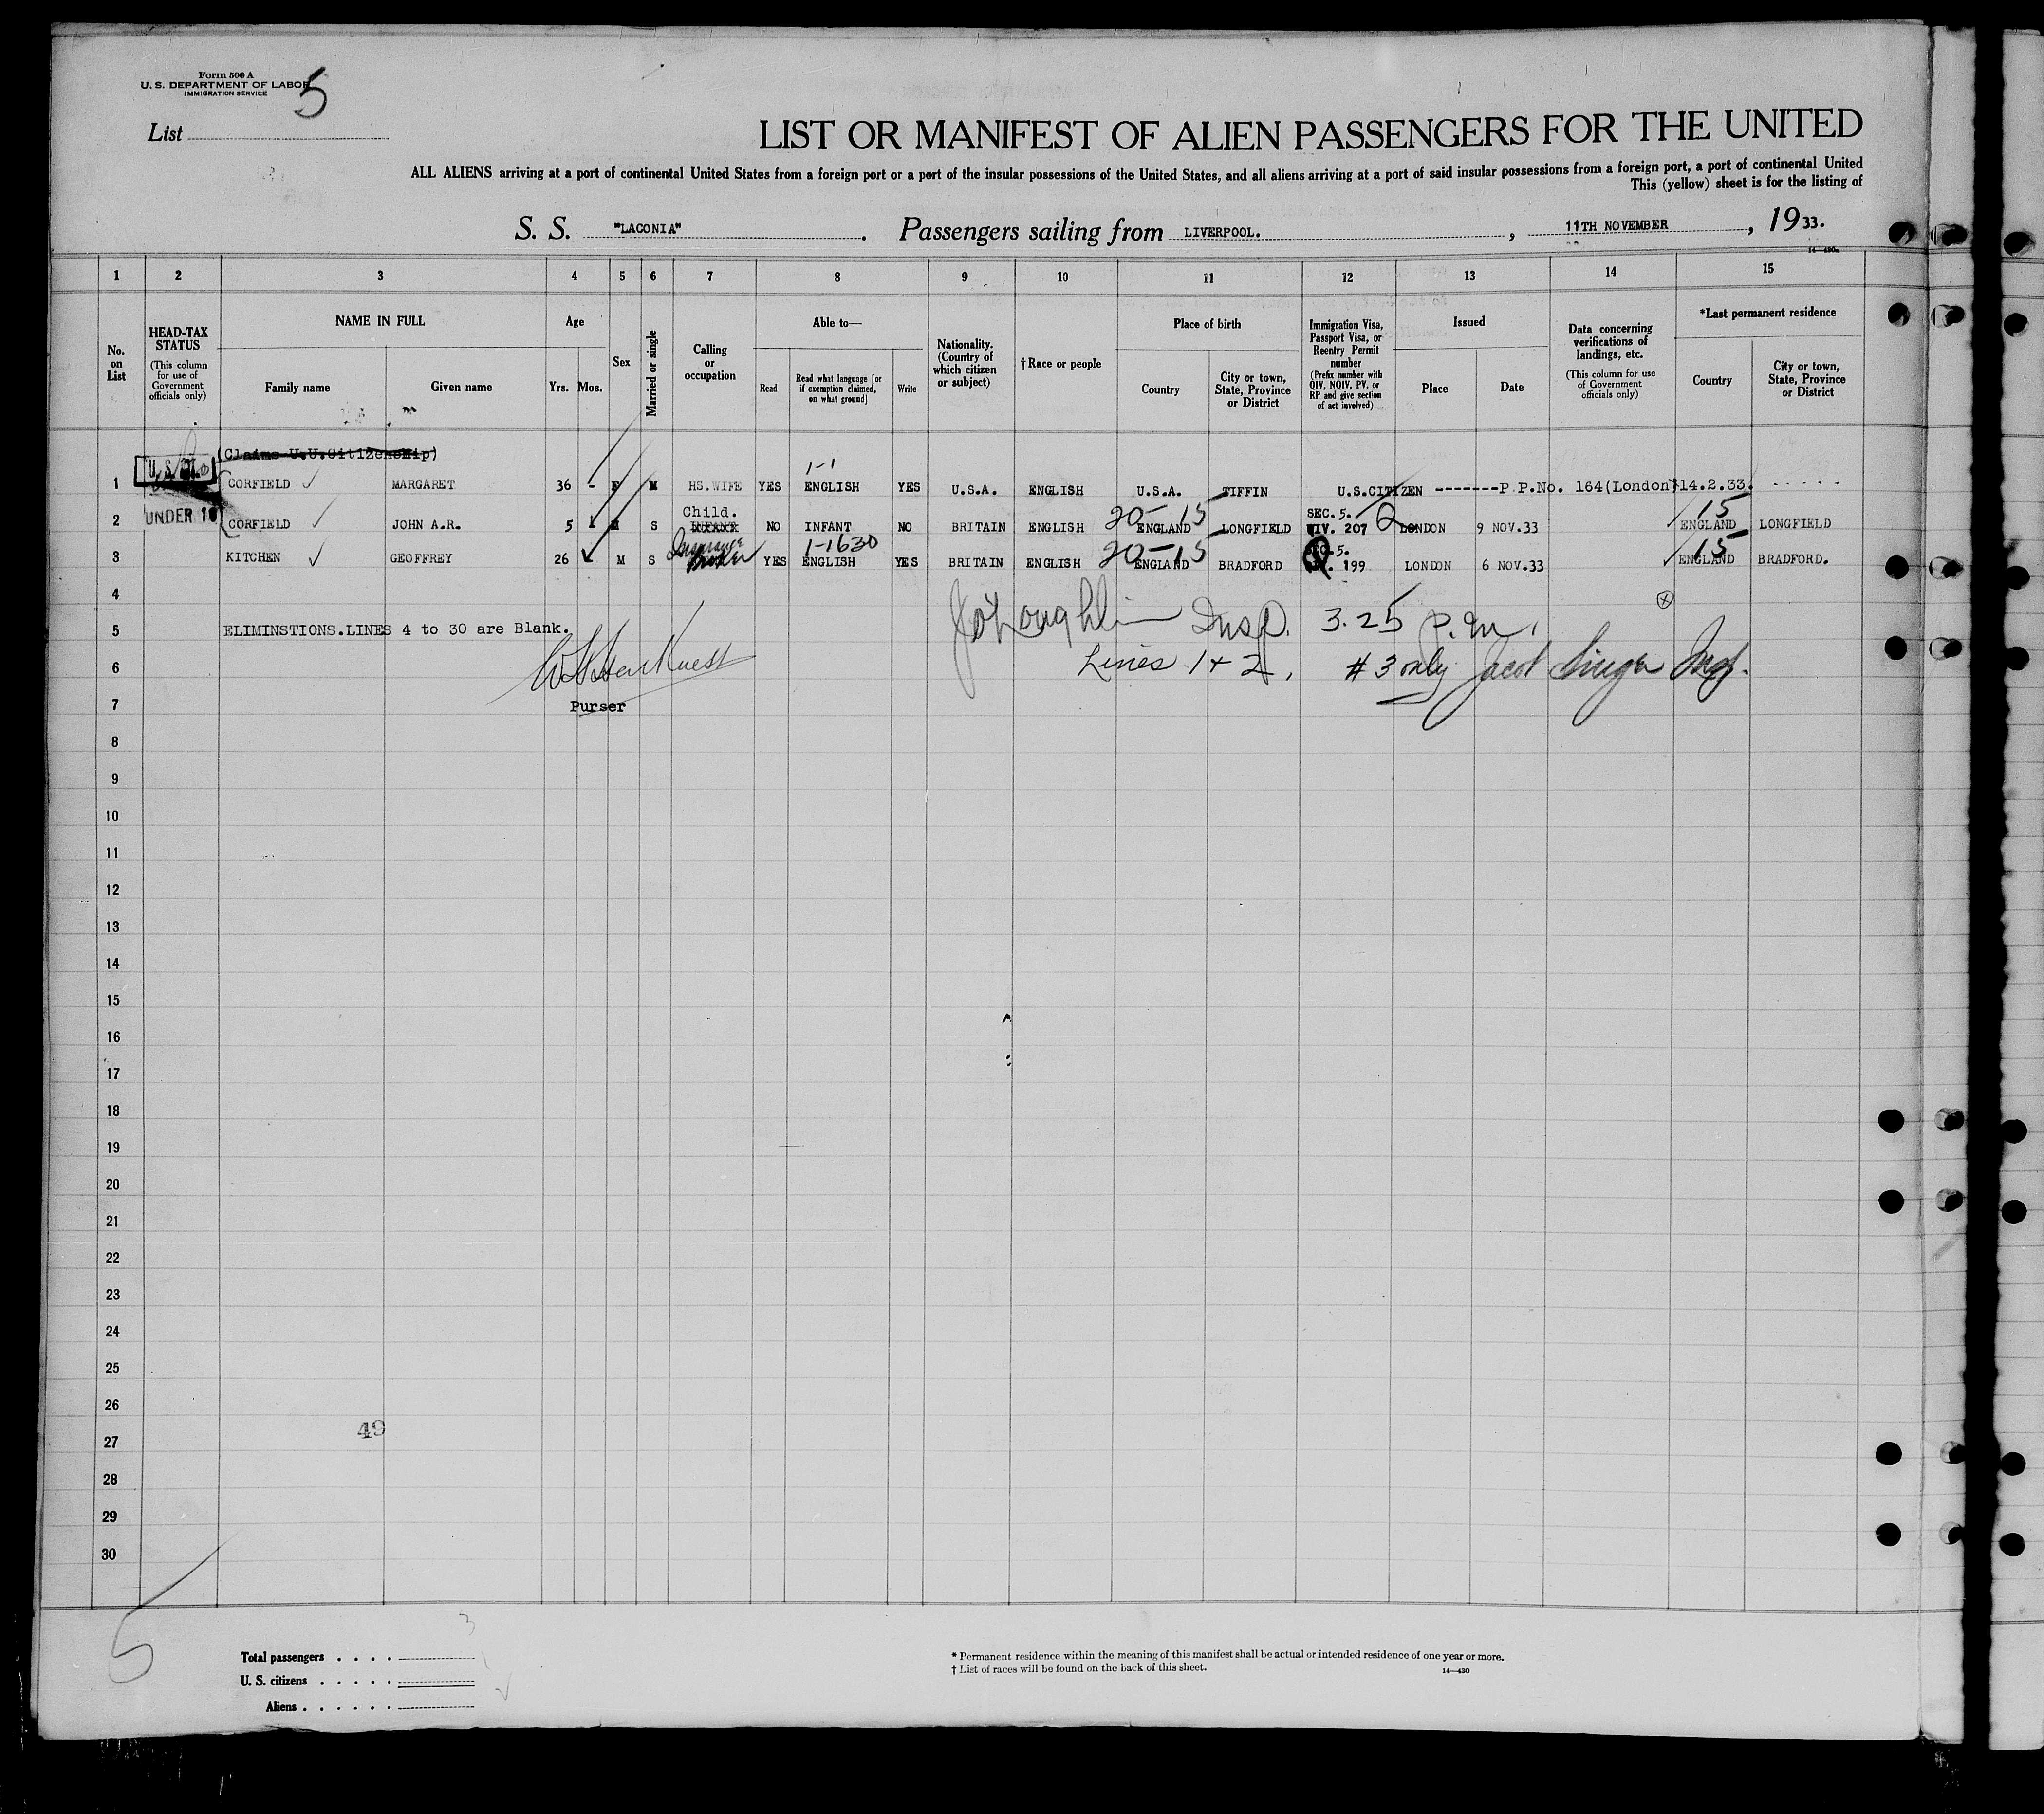 Form 500 A
U. S. DEPARTMENT OF LABOR
IMMIGRATION SERVICE
5
List
LIST OR MANIFEST OF ALIEN PASSENGERS FOR THE UNITED
ALL ALIENS arriving at a port of continental United States from a foreign port or a port of the insular possessions of the United States, and all aliens arriving at a port of said insular possessions from a foreign port, a port of continental United
This (yellow) sheet is for the listing of
S. S. "LACONIA". Passengers sailing from LIVERPOOL., 11TH NOVEMBER, 1933.
14—430a
1 2 3 4 5 6 7 8 9 10 11 12 13 14 15
No. on List
HEAD-TAX STATUS (This column for use of Government officials only)
NAME IN FULL
Family name Given name
Age
Yrs. Mos.
Sex
Married or single
Calling or occupation
Able to—
Read Read what language [or if exemption claimed, on what ground] Write
Nationality. (Country of which citizen or subject)
†Race or people
Place of birth
Country City or town, State, Province or District
Immigration Visa, Passport Visa, or Reentry Permit number (Prefix number with QIV, NQIV, PV, or RP and give section of act involved)
Issued
Place Date
Data concerning verifications of landings, etc. (This column for use of Government officials only)
*Last permanent residence
Country City or town, State, Province or District
(Claims U.U.Citizenship)
1-1
1 CORFIELD MARGARET 36 - F M HS.WIFE YES ENGLISH YES U.S.A. ENGLISH U.S.A. TIFFIN U.S.CITIZEN -------P.P.No. 164(London)14.2.33.
UNDER 16
Child.
20-15 SEC.5. Q 15
2 CORFIELD JOHN A.R. 5 M S INFANT NO INFANT NO BRITAIN ENGLISH ENGLAND LONGFIELD 207 LONDON 9 NOV.33 ENGLAND LONGFIELD
Insurance Broker 1-1630 20-15 SEC.5. 15
3 KITCHEN GEOFFREY 26 M S YES ENGLISH YES BRITAIN ENGLISH ENGLAND BRADFORD 199 LONDON 6 NOV.33 ENGLAND BRADFORD.
4
J O'Loughlin Insp. 3.25 p.m.
5 ELIMINSTIONS.LINES 4 to 30 are Blank.
6 Lines 1 + 2, #3 only Jacob Singer Insp.
7 Purser
8
9
10
11
12
13
14
15
16
17
18
19
20
21
22
23
24
25
26
49
27
28
29
30
5
3
Total passengers . . . .
U. S. citizens . . . . .
Aliens . . . . . .
* Permanent residence within the meaning of this manifest shall be actual or intended residence of one year or more.
† List of races will be found on the back of this sheet. 14—430